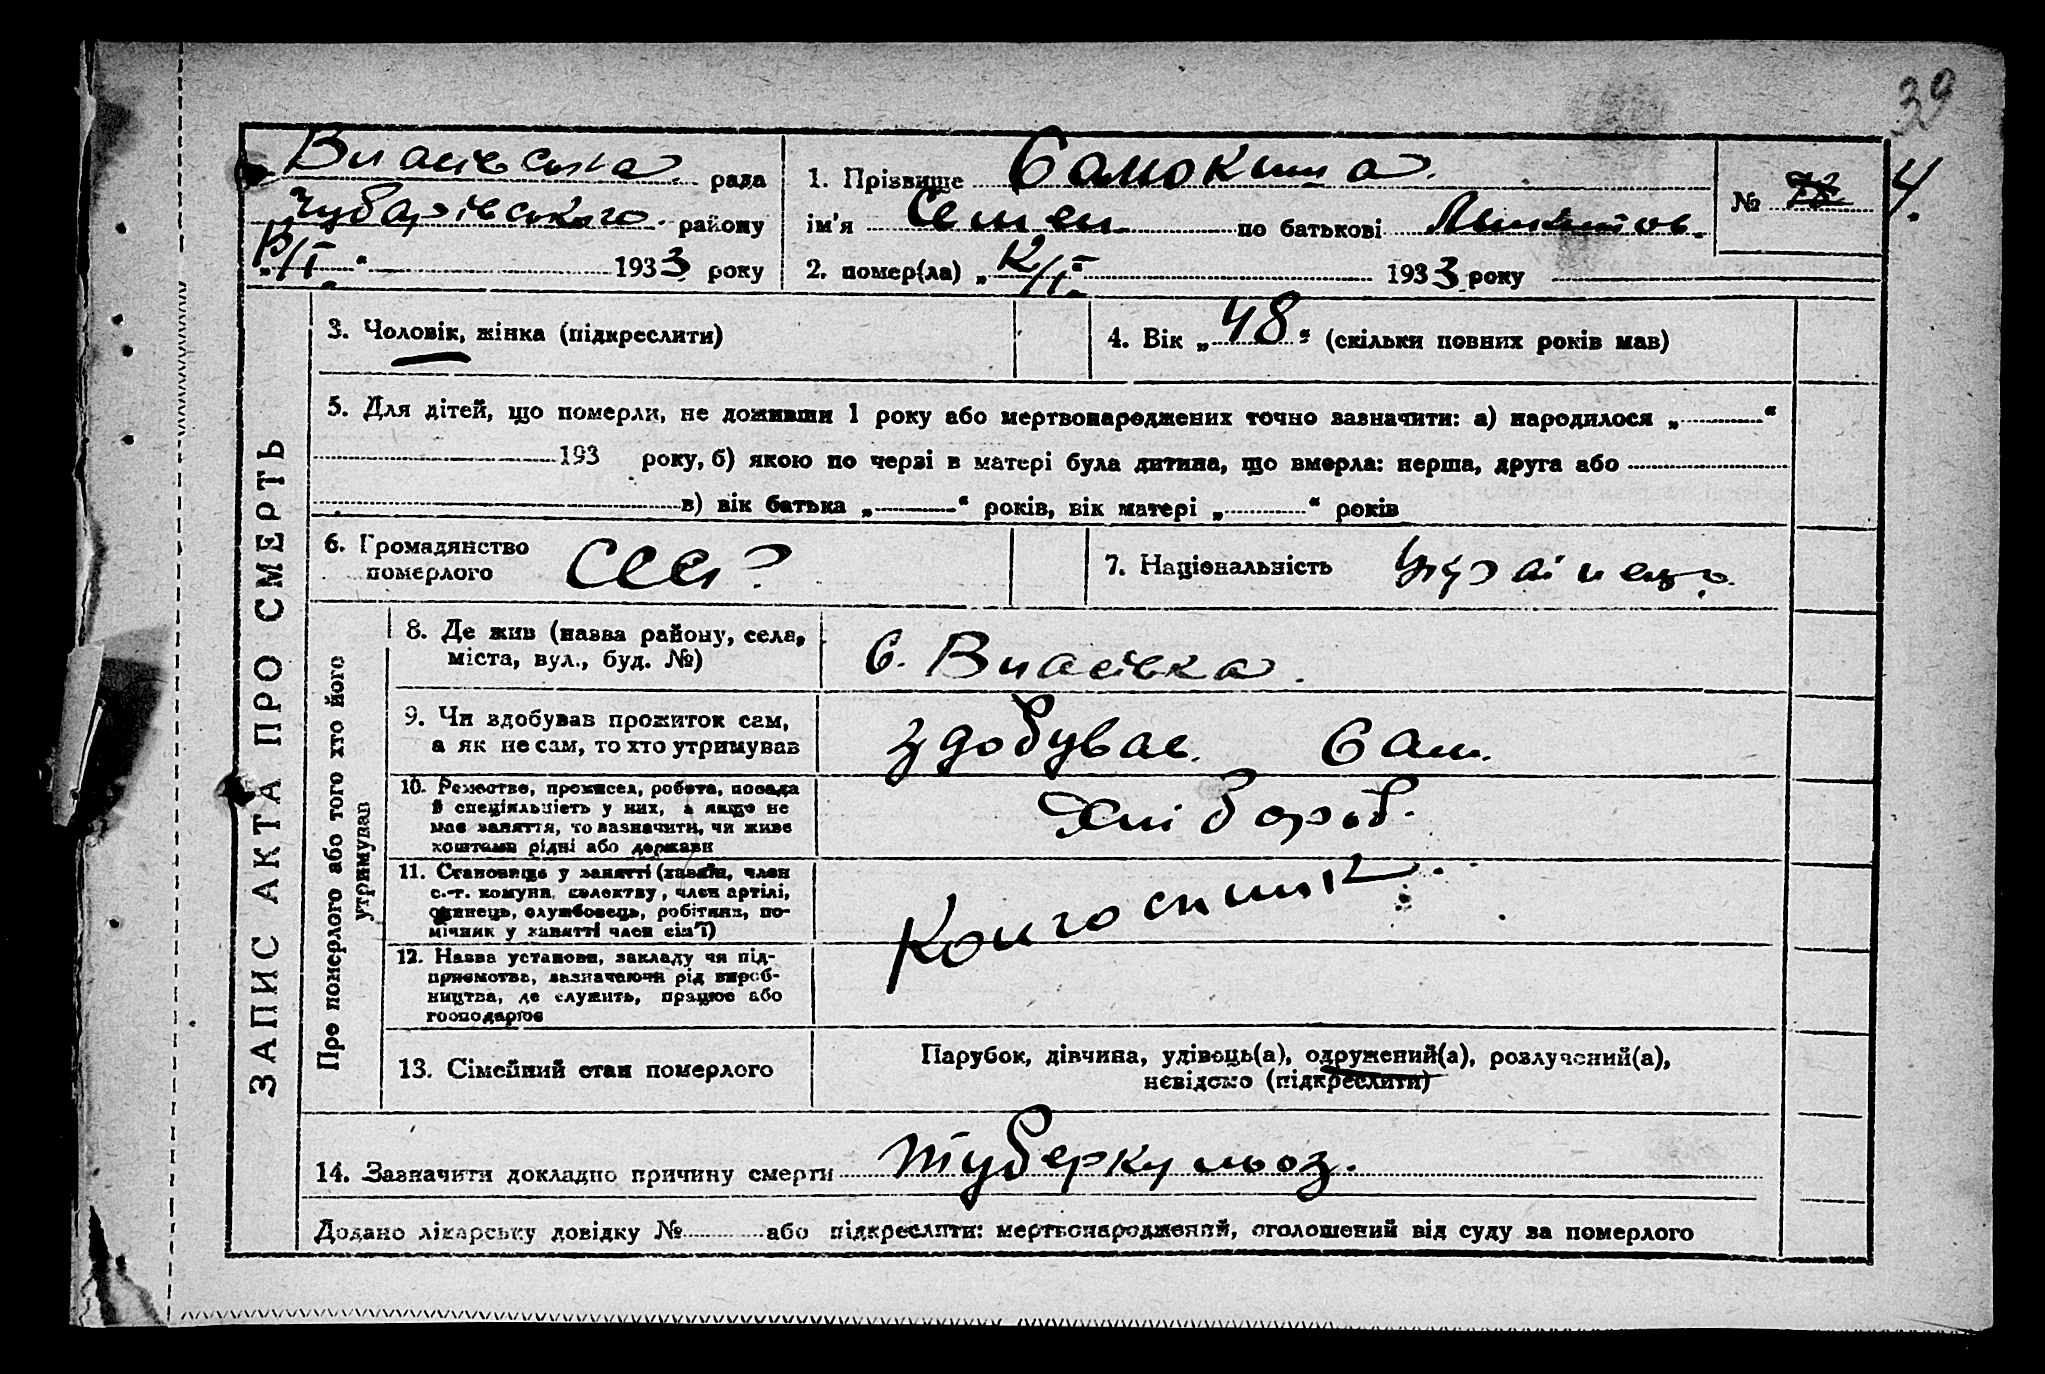 39
Власівська рада
Чубарівського району
193 3 року
1. Прізвище Самокиша
ім'я Семен по батькові
2. помер(ла) „ 193 3 року
№ 4.
ЗАПИС АКТА ПРО СМЕРТЬ
3. Чоловік, жінка (підкреслити)
4. Вік „ 48 “ (скільки повних років мав)
5. Для дітей, що померли, не доживши 1 року або мертвонароджених точно зазначити: а) народилося „ “
193 року, б) якою по черзі в матері була дитина, що вмерла: перша, друга або
в) вік батька „ “ років, вік матері „ “ років
6. Громадянство
померлого
7. Національність Українець.
Про померлого або того хто його
утримував
8. Де жив (назва району, села,
міста, вул., буд. №)
С. Власівка.
9. Чи здобував прожиток сам,
а як не сам, то хто утримував
здобував. Сам.
10. Ремество, промисел, робота, посада
й спеціяльність у них, а якщо не
має заняття, то зазначити, чи живе
коштами рідні або держави
Хлібороб.
11. Становище у занятті (хазяїн, член
с.-г. комуни, колективу, член артілі,
одинець, службовець, робітник, по-
мічник у занятті член сім'ї)
Колгоспник.
12. Назва установи, закладу чи під-
приємства, зазначаючи рід вироб-
ництва, де служить, працює або
господарює
13. Сімейний стан померлого
Парубок, дівчина, удівець(а), одружений(а), розлучений(а),
невідомо (підкреслити)
14. Зазначити докладно причину смерти туберкульоз.
Додано лікарську довідку № або підкреслити: мертвонароджений, оголошений від суду за померлого